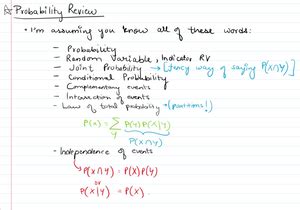 ☆ Probability Review
• I'm assuming you know all of these words:
- Probability
- Random Variable, Indicator RV
- Joint Probability → [fancy way of saying P(X∩Y)]
- Conditional Probability
- Complementary events
- Intersection of events
- Law of total probability → (partitions!)
P(X) = ∑ P(Y) P(X|Y)
Y
P(X∩Y)
- Independence of events
→ P(X∩Y) = P(X)P(Y)
or
P(X|Y) = P(X)